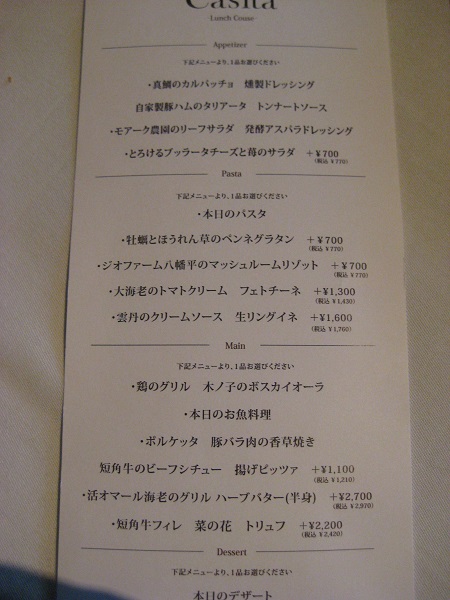 Casita
-Lunch Couse-
Appetizer
下記メニューより、1品お選びください
・真鯛のカルパッチョ 燻製ドレッシング
自家製豚ハムのタリアータ トンナートソース
・モアーク農園のリーフサラダ 発酵アスパラドレッシング
・とろけるブッラータチーズと苺のサラダ +¥700
(税込 ¥770)
Pasta
下記メニューより、1品お選びください
・本日のパスタ
・牡蠣とほうれん草のペンネグラタン +¥700
(税込 ¥770)
・ジオファーム八幡平のマッシュルームリゾット +¥700
(税込 ¥770)
・大海老のトマトクリーム フェトチーネ +¥1,300
(税込 ¥1,430)
・雲丹のクリームソース 生リングイネ +¥1,600
(税込 ¥1,760)
Main
下記メニューより、1品お選びください
・鶏のグリル 木ノ子のボスカイオーラ
・本日のお魚料理
・ポルケッタ 豚バラ肉の香草焼き
短角牛のビーフシチュー 揚げピッツァ +¥1,100
(税込 ¥1,210)
・活オマール海老のグリル ハーブバター(半身) +¥2,700
(税込 ¥2,970)
・短角牛フィレ 菜の花 トリュフ +¥2,200
(税込 ¥2,420)
Dessert
下記メニューより、1品お選びください
本日のデザート